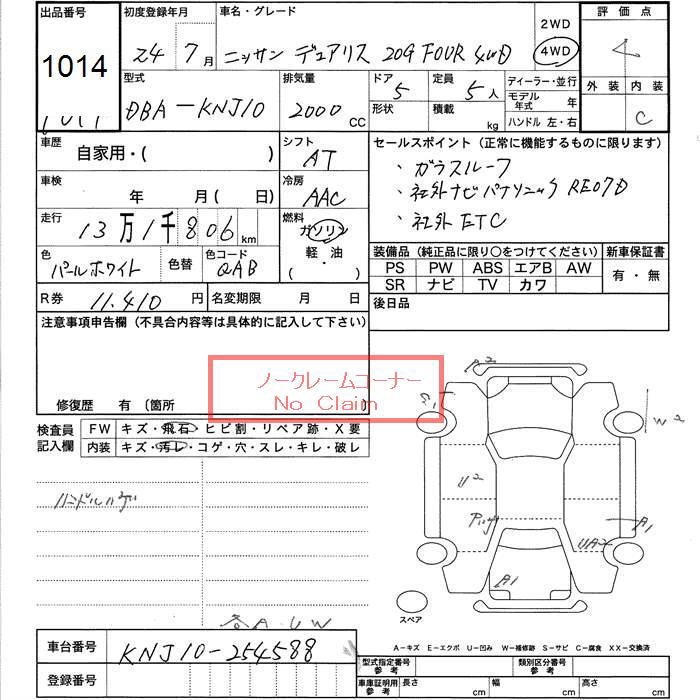 出品番号 初度登録年月 車名・グレード 2WD 評価点
1014 24 7月 ニッサン デュアリス 20G FOUR 4WD 4WD 4
型式 排気量 ドア 定員 ディーラー・並行 外装 内装
DBA-KNJ10 2000 CC 5 5人 モデル年式 年 C
形状 積載 kg ハンドル 左・右
車歴 自家用・( ) シフト AT セールスポイント (正常に機能するものに限ります)
・ガラスルーフ
車検 年 月( 日) 冷房 AAC ・社外ナビパナソニック RE07D
走行 13万1千806km 燃料 ガソリン ・社外ETC
軽・油
・( )
色 パールホワイト 色替 色コード QAB
装備品 (純正品に限り○をつけてください) 新車保証書
PS PW ABS エアB AW 有・無
SR ナビ TV カワ
R券 11.410円 名変期限 月 日 後日品
注意事項申告欄 (不具合内容等は具体的に記入して下さい)
ノークレームコーナー
No Claim
修復歴 有 (箇所 )
検査員記入欄 FW キズ・飛石・ヒビ割・リペア跡・X要
内装 キズ・汚レ・コゲ・穴・スレ・キレ・破レ
ハンドルハゲ
A2
W2
U2
A1
UA2
A1
スペア
各A.UW
A-キズ E-エクボ U-凹み W-補修跡 S-サビ C-腐食 XX-交換済
車台番号 KNJ10-254588
登録番号
型式指定番号 参考 類別区分番号 参考
車庫証明用 参考 長さ cm 幅 cm 高さ cm